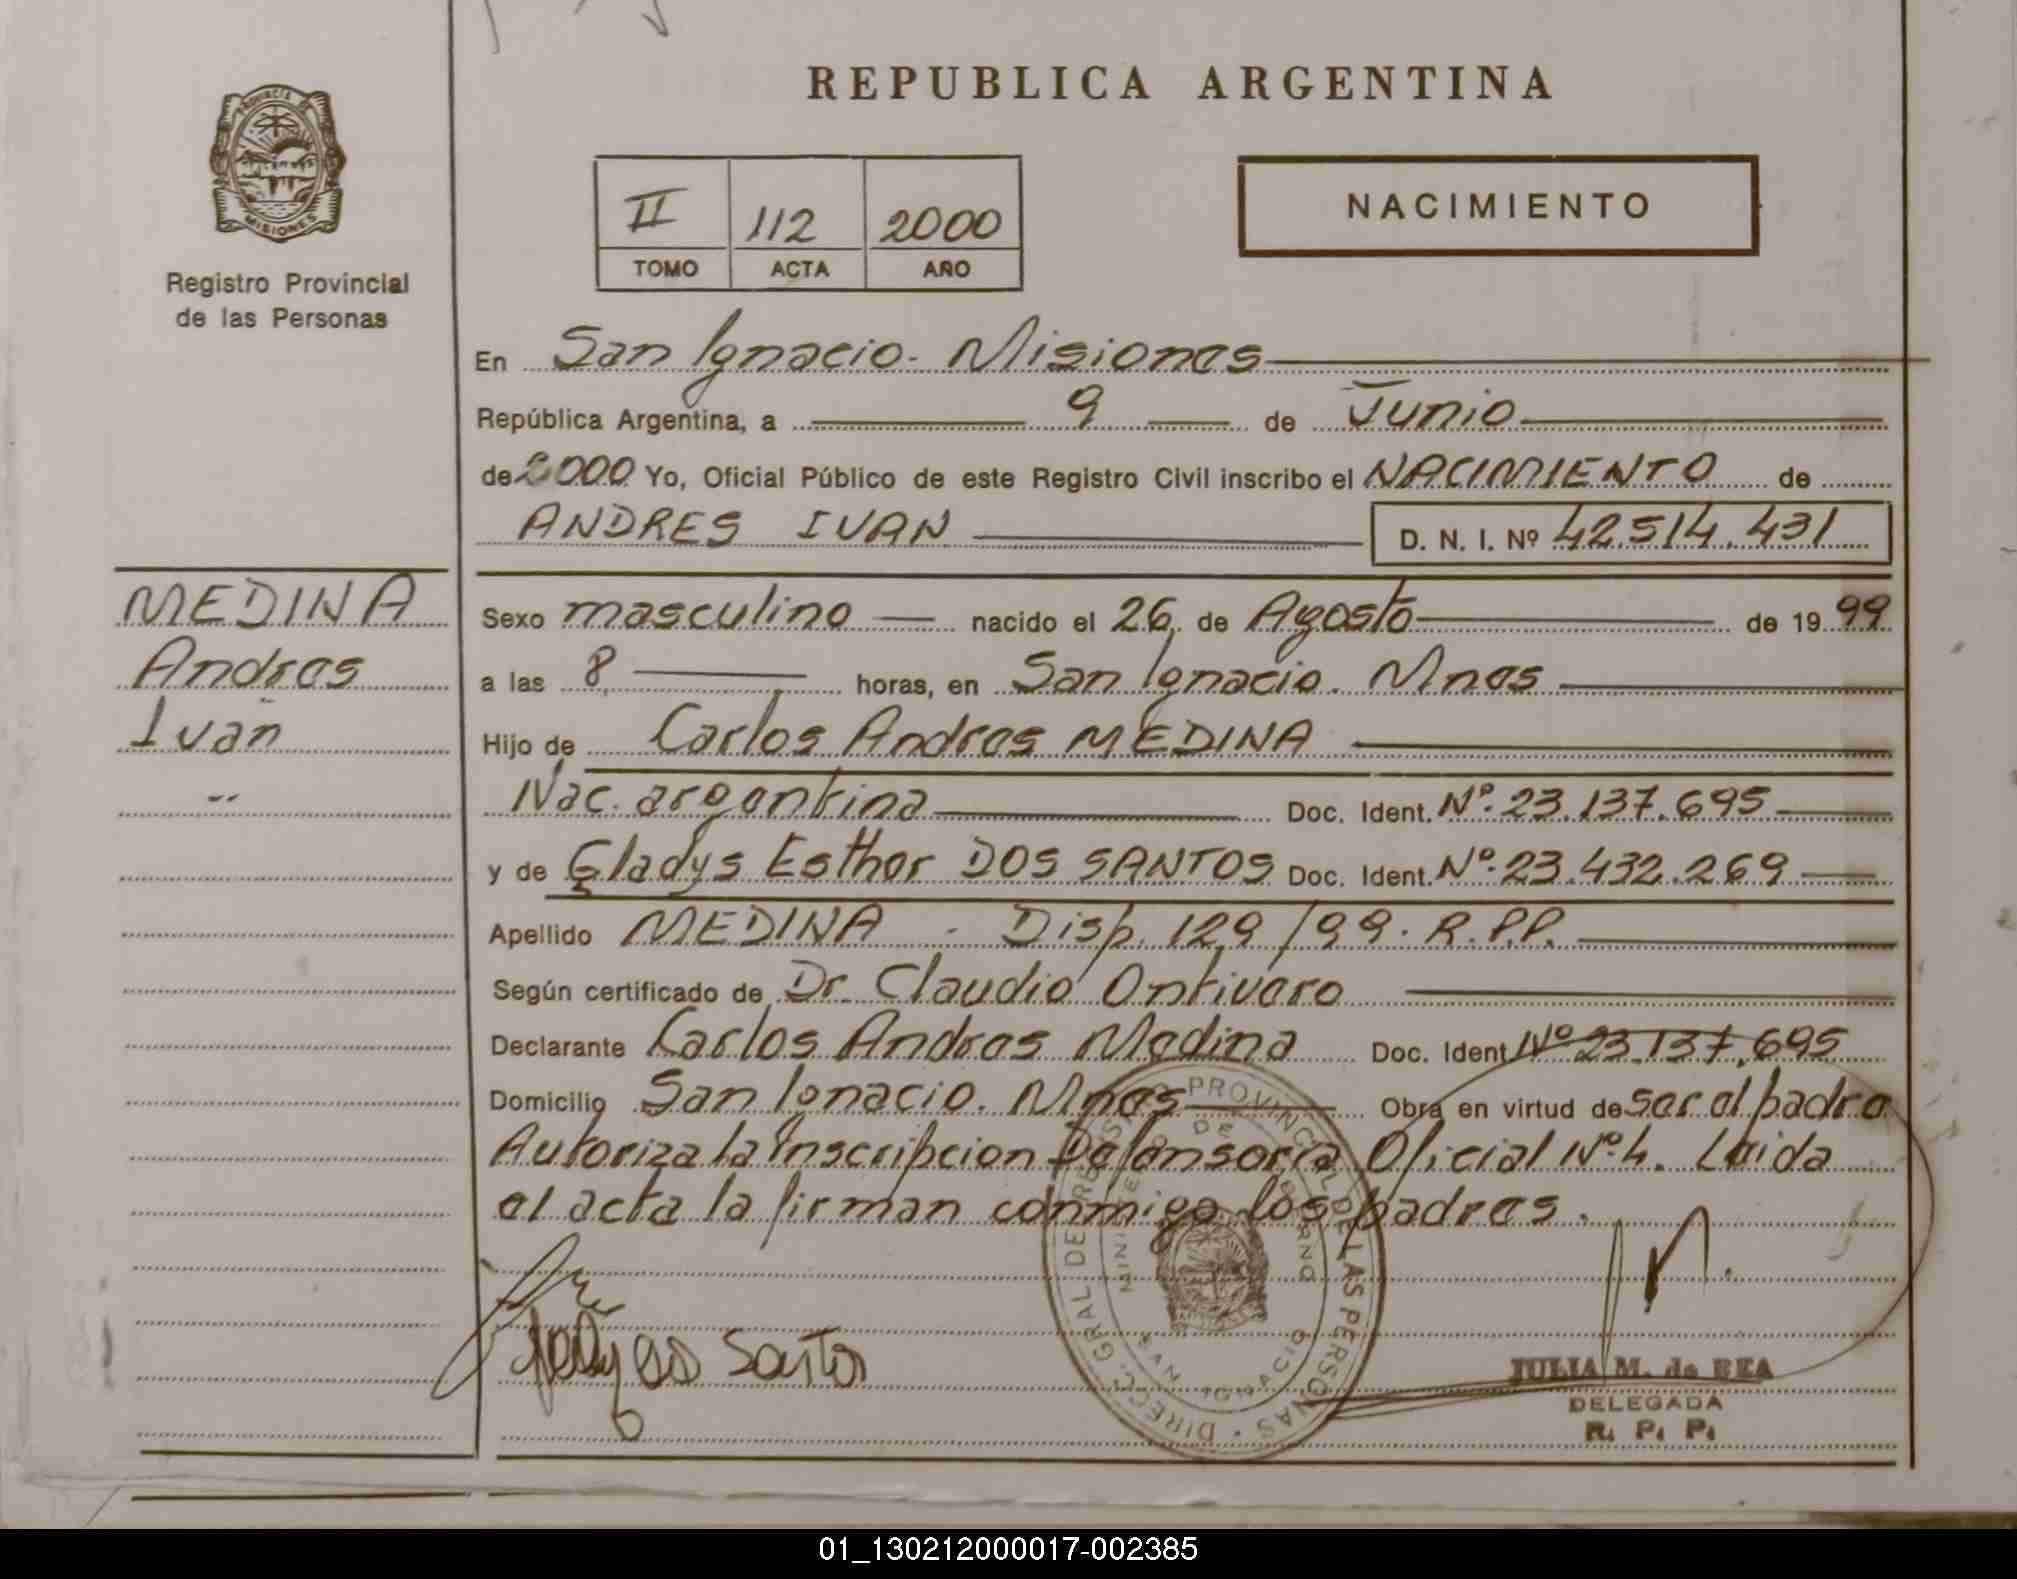 REPUBLICA ARGENTINA
PROVINCIA DE
MISIONES
Registro Provincial
de las Personas
II 112 2000
TOMO ACTA AÑO
NACIMIENTO
En San Ignacio - Misiones
República Argentina, a 9 de Junio
de 2000 Yo, Oficial Público de este Registro Civil inscribo el NACIMIENTO de
ANDRES IVAN D. N. I. Nº 42.514.431
MEDINA
Andres
Ivan
Sexo masculino nacido el 26 de Agosto de 1999
a las 8 horas, en San Ignacio. Mnes
Hijo de Carlos Andres MEDINA
Nac. argentina Doc. Ident. Nº. 23.137.695
y de Gladys Esther DOS SANTOS Doc. Ident. Nº. 23.432.269
Apellido MEDINA - Disp. 129/99. R.P.P.
Según certificado de Dr. Claudio Ontivero
Declarante Carlos Andres Medina Doc. Ident Nº 23.137.695
Domicilio San Ignacio. Mnes Obra en virtud de ser el padre
Autoriza la Inscripcion Defensoria Oficial Nº 4. Leida
el acta la firman conmigo los padres.
DIRECC. GRAL DE REGISTRO PROVINCIAL DE LAS PERSONAS
MINISTERIO DE GOBIERNO
SAN IGNACIO
JULIA M. de REA
DELEGADA
R. P. P.
01_130212000017-002385